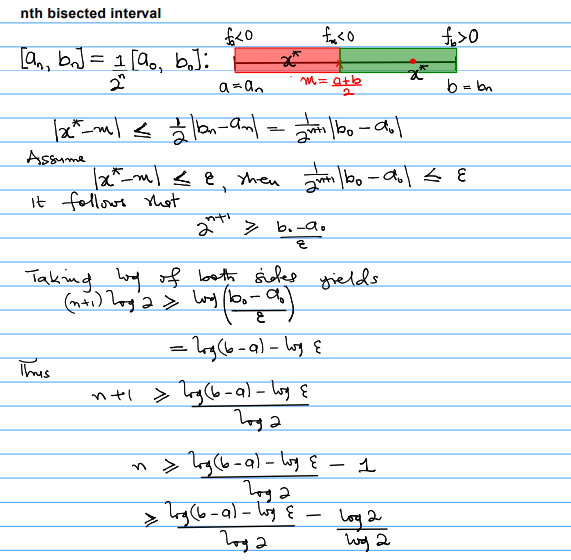 nth bisected interval
fₐ<0 fₘ<0 f_b>0
[aₙ, bₙ] = 1/2ⁿ [a₀, b₀]: x* x*
a=aₙ m = a+b/2 b = bₙ
|x*-m| ≤ 1/2 |bₙ-aₙ| = 1/2ⁿ⁺¹ |b₀-a₀|
Assume
|x*-m| ≤ ε, then 1/2ⁿ⁺¹ |b₀-a₀| ≤ ε
It follows that
2ⁿ⁺¹ ≥ b₀-a₀/ε
Taking log of both sides yields
(n+1) log 2 ≥ log(b₀-a₀/ε)
= log(b-a) - log ε
Thus
n+1 ≥ log(b-a) - log ε/log 2
n ≥ log(b-a) - log ε/log 2 - 1
≥ log(b-a) - log ε/log 2 - log 2/log 2